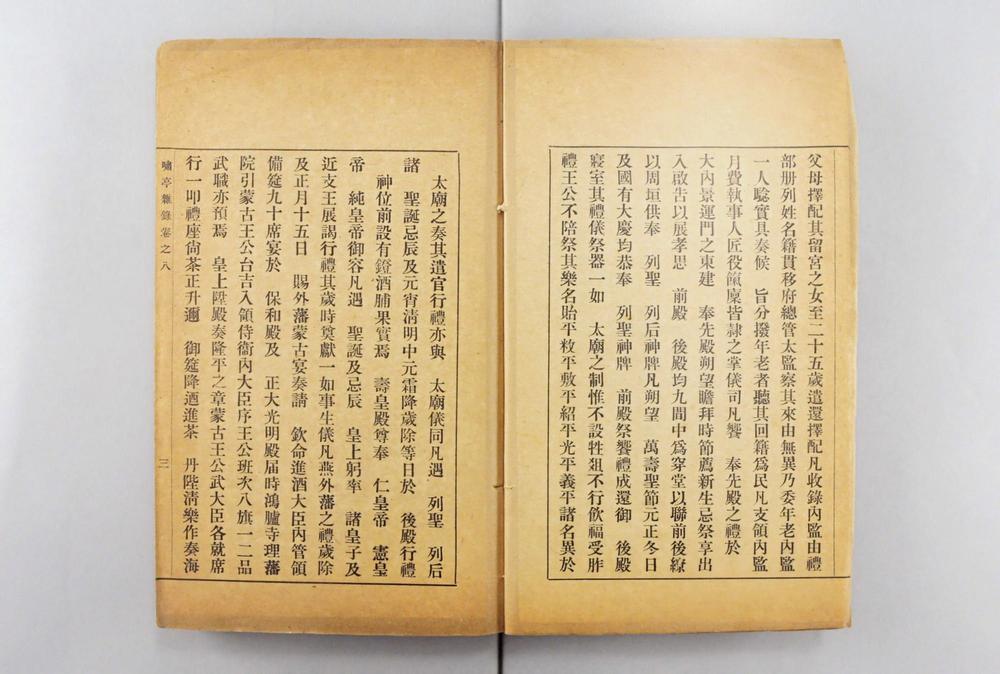 父母擇配其留宮之女至二十五歲遣還擇配凡收錄內監由禮
部册列姓名籍貫移府總管太監察其來由無異乃委年老內監
一人騐實具奏候　旨分撥年老者聽其回籍爲民凡支領內監
月費執事人匠役餼廩皆隷之掌儀司凡饗　奉先殿之禮於
大內景運門之東建　奉先殿朔望瞻拜時節薦新生忌祭享出
入啟告以展孝思　前殿　後殿均九間中爲穿堂以聯前後繚
以周垣供奉　列聖　列后神牌凡朔望　萬壽聖節元正冬日
及國有大慶均恭奉　列聖神牌　前殿祭饗禮成還御　後殿
寢室其禮儀祭器一如　太廟之制惟不設牲俎不行飮福受胙
禮王公不陪祭其樂名貽平敉平敷平紹平光平義平諸名異於
太廟之奏其遣官行禮亦與　太廟儀同凡遇　列聖　列后
諸　聖誕忌辰及元宵淸明中元霜降歲除等日於　後殿行禮
神位前設有鐙酒脯果實焉　壽皇殿尊奉　仁皇帝　憲皇
帝　純皇帝御容凡遇　聖誕及忌辰　皇上躬率　諸皇子及
近支王展謁行禮其歲時奠獻一如事生儀凡燕外藩之禮歲除
及正月十五日　賜外藩蒙古宴奏請　欽命進酒大臣內管領
備筵九十席宴於　保和殿及　正大光明殿屆時鴻臚寺理藩
院引蒙古王公台吉入領侍衞內大臣序王公班次八旗一二品
武職亦預焉　皇上陞殿奏隆平之章蒙古王公武大臣各就席
行一叩禮座尙茶正升邇　御筵降酒進茶　丹陛淸樂作奏海
嘯亭雜錄卷之八　三